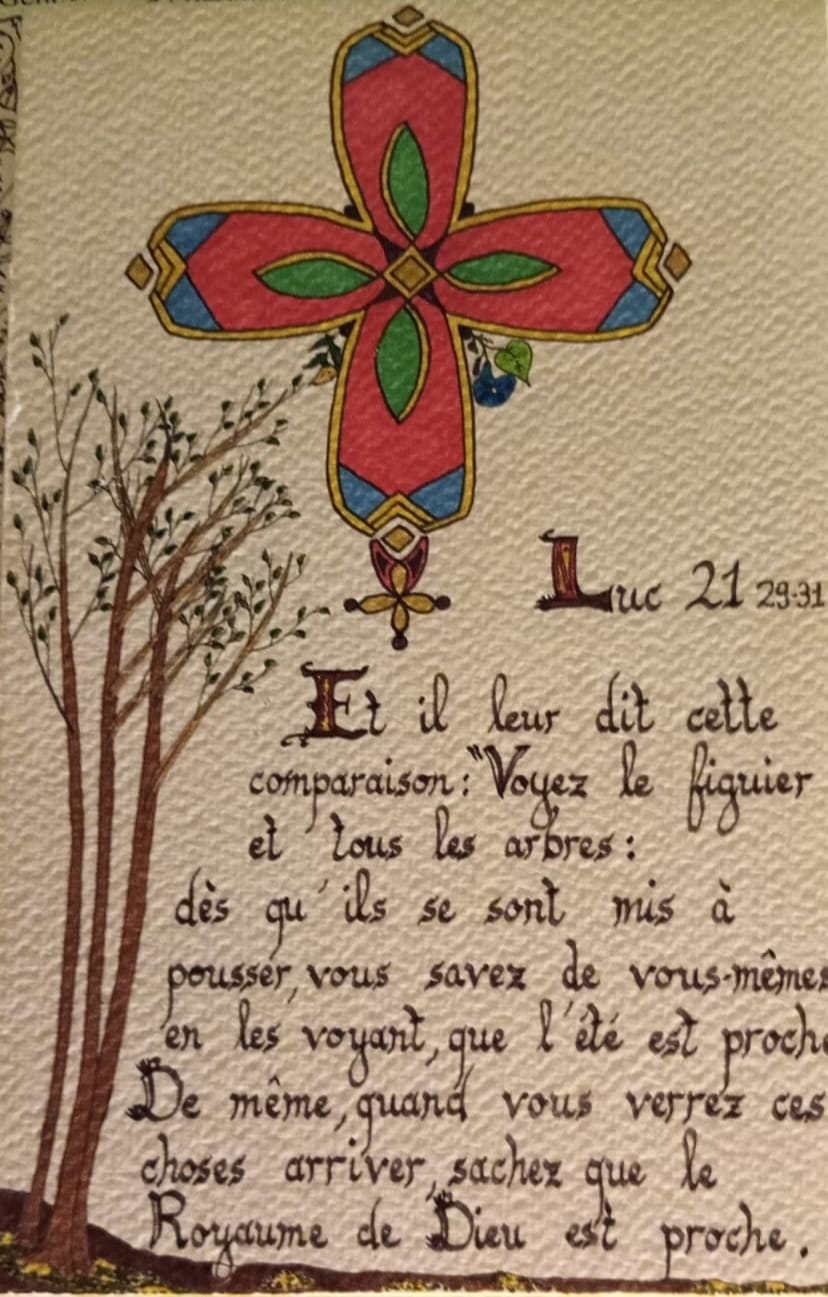 Luc 21 29-31
Et il leur dit cette
comparaison : "Voyez le figuier
et tous les arbres :
dès qu'ils se sont mis à
pousser, vous savez de vous-mêmes
en les voyant, que l'été est proche
De même, quand vous verrez ces
choses arriver, sachez que le
Royaume de Dieu est proche.